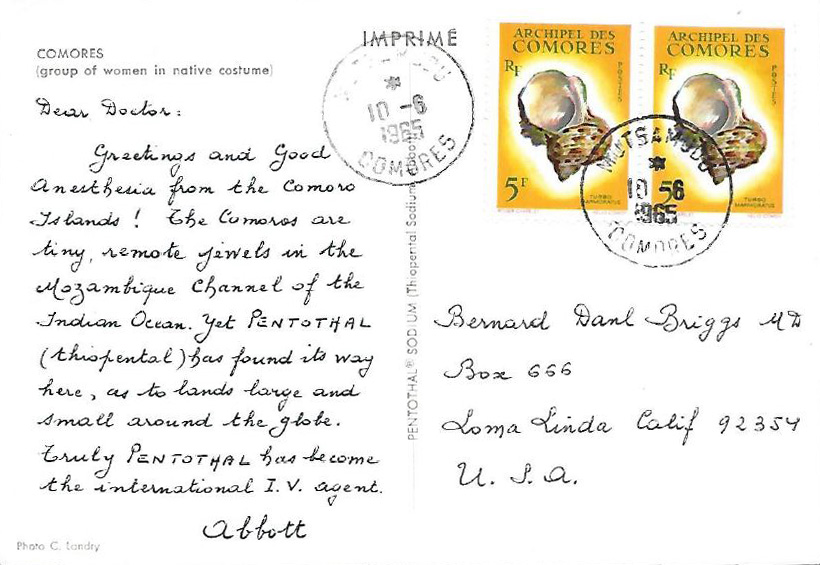 IMPRIMÉ
COMORES
(group of women in native costume)
Dear Doctor:
Greetings and Good
Anesthesia from the Comoro
Islands! The Comoros are
tiny, remote jewels in the
Mozambique Channel of the
Indian Ocean. Yet PENTOTHAL
(thiopental) has found its way
here, as to lands large and
small around the globe.
Truly PENTOTHAL has become
the international I.V. agent.
Abbott
Photo C. Landry
PENTOTHAL® SODIUM (Thiopental Sodium, Abbott)
ARCHIPEL DES
COMORES
RF
POSTES
5F
TURBO
MARMORATUS
ARCHIPEL DES
COMORES
RF
POSTES
5F
TURBO
MARMORATUS
MUTSAMUDU
10 -6
1965
COMORES
MUTSAMUDU
10 -6
1965
COMORES
Bernard Danl Briggs MD
Box 666
Loma Linda Calif 92354
U.S.A.